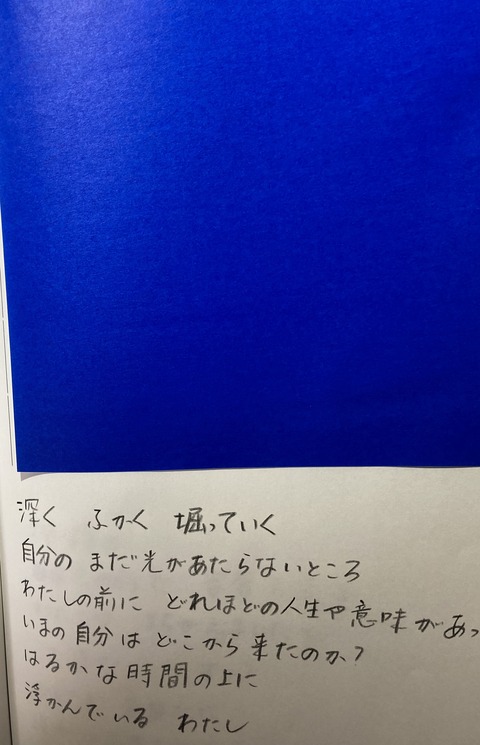 深く　ふかく　堀っていく
自分の まだ光があたらないところ
わたしの前に　どれほどの人生や意味があっ
いまの自分は どこから来たのか?
はるかな時間の上に
浮かんでいる　わたし